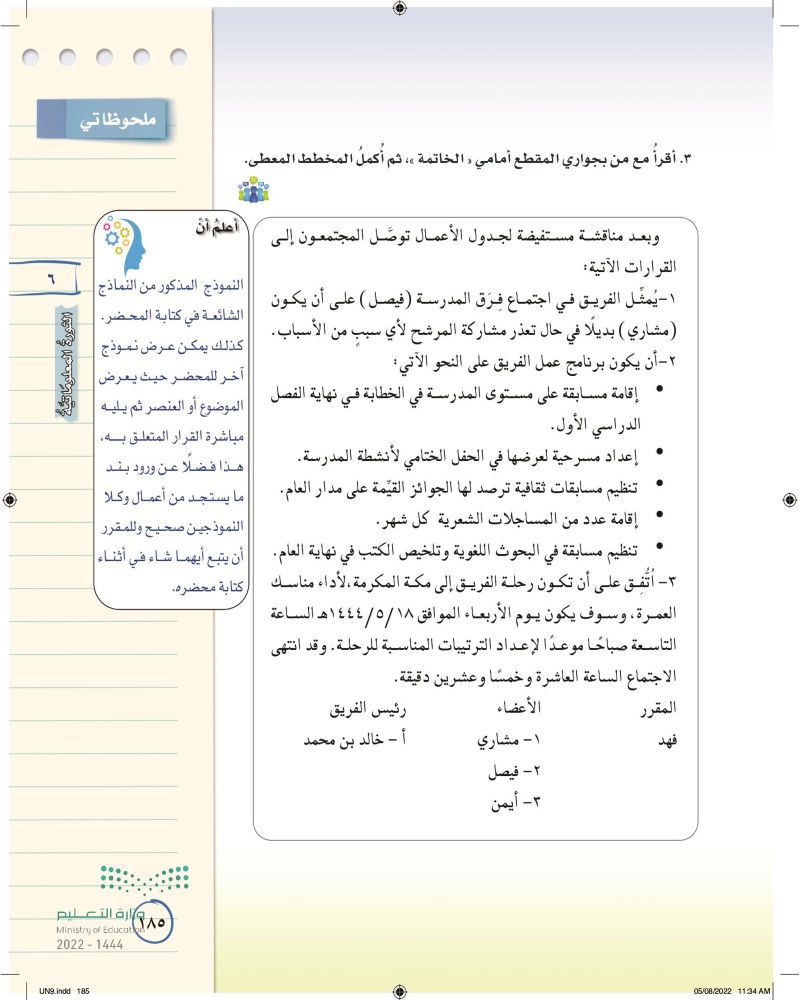 ملحوظاتي
٣. أقرأُ مع من بجواري المقطع أمامي « الخاتمة »، ثم أُكملُ المخطط المعطى.
وبعد مناقشة مستفيضة لجدول الأعمال توصَّل المجتمعون إلى
القرارات الآتية:
١-يُمثِّل الفريق في اجتماع فِرَق المدرسة (فيصل) على أن يكون
(مشاري) بديلًا في حال تعذر مشاركة المرشح لأي سببٍ من الأسباب.
٢-أن يكون برنامج عمل الفريق على النحو الآتي:
• إقامة مسابقة على مستوى المدرسة في الخطابة في نهاية الفصل
الدراسي الأول.
• إعداد مسرحية لعرضها في الحفل الختامي لأنشطة المدرسة.
• تنظيم مسابقات ثقافية ترصد لها الجوائز القيِّمة على مدار العام.
• إقامة عدد من المساجلات الشعرية كل شهر.
• تنظيم مسابقة في البحوث اللغوية وتلخيص الكتب في نهاية العام.
٣- اُتُّفِق على أن تكون رحلة الفريق إلى مكة المكرمة،لأداء مناسك
العمرة، وسوف يكون يوم الأربعاء الموافق ١٤٤٤/٥/١٨هـ الساعة
التاسعة صباحًا موعدًا لإعداد الترتيبات المناسبة للرحلة. وقد انتهى
الاجتماع الساعة العاشرة وخمسًا وعشرين دقيقة.
المقرر الأعضاء رئيس الفريق
فهد ١- مشاري أ - خالد بن محمد
٢- فيصل
٣- أيمن
أعلمُ أنّ
النموذج المذكور من النماذج
الشائعة في كتابة المحضر.
كذلك يمكن عرض نموذج
آخر للمحضر حيث يعرض
الموضوع أو العنصر ثم يليه
مباشرة القرار المتعلق به،
هذا فضلًا عن ورود بند
ما يستجد من أعمال وكلا
النموذجين صحيح وللمقرر
أن يتبع أيهما شاء في أثناء
كتابة محضره.
٦
الثورةُ المعلوماتيَّةُ
وزارة التعليم
Ministry of Education
2022 - 1444
١٨٥
UN9.indd 185
05/08/2022 11:34 AM